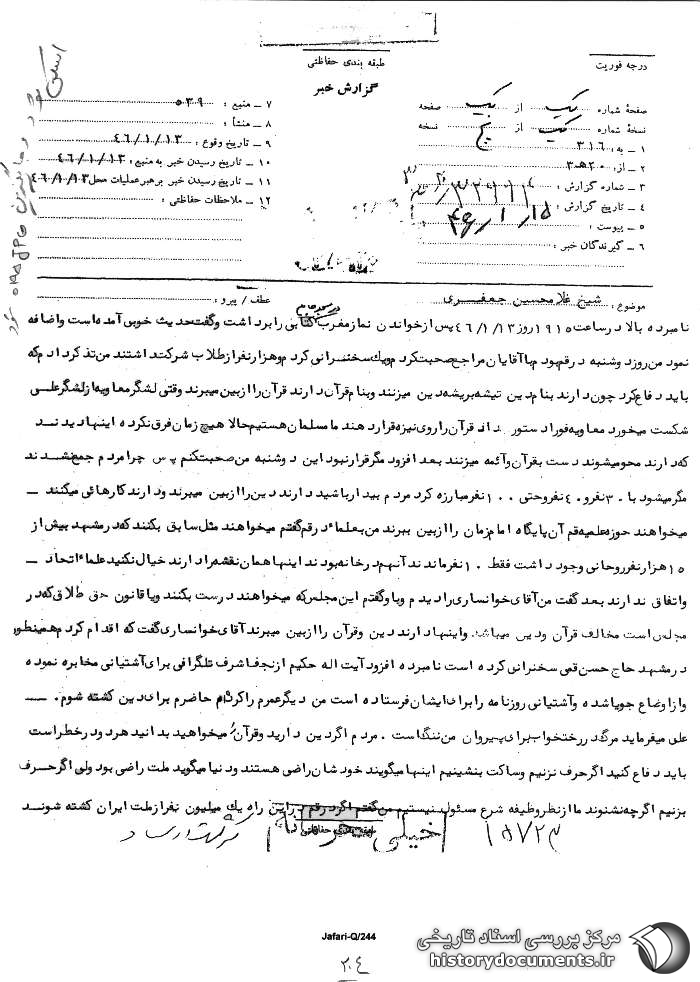 طبقه بندی حفاظتی
درجه فوریت
گزارش خبر
صفحهٔ شماره یک از یک صفحه
نسخهٔ شماره یک از پنج نسخه
۱ ـ به : ۳۱۶
۲ ـ از : ۲۰ه۳
۳ ـ شماره گزارش :
۴ ـ تاریخ گزارش : ۴۶/۱/۱۵
۵ ـ پیوست :
۶ ـ گیرندگان خبر :
۷ ـ منبع : ۵۳۹
۸ ـ منشأ :
۹ ـ تاریخ وقوع : ۴۶/۱/۱۳
۱۰ ـ تاریخ رسیدن خبر به منبع : ۴۶/۱/۱۳
۱۱ ـ تاریخ رسیدن خبر برهبر عملیات محل ۴۶/۱/۱۳
۱۲ ـ ملاحظات حفاظتی :
موضوع : شیخ غلامحسین جعفری
عطف / پیرو :
در مسجد جامع
نامبرده بالا در ساعت ۱۹۱۵ روز ۴۶/۱/۱۳ پس از خواندن نماز مغرب کتابی را برداشت و گفت حدیث خوبی آمده است واضافه
نمود من روز دوشنبه در قم بودم با آقایان مراجع صحبت کردم و یک سخنرانی کردم و هزار نفر از طلاب شرکت داشتند من تذکر دادم که
باید دفاع کرد چون دارند بنام دین تیشه بریشه دین میزنند و بنام قرآن دارند قرآن را از بین میبرند وقتی لشگر معاویه از لشگر علی
شکست میخورد معاویه فورا دستور داد قرآن را روی نیزه قرار دهند ما مسلمان هستیم حالا هیچ زمان فرق نکرده اینها دیدند
که دارند محو میشوند دست بقرآن و آئمه میزنند بعد افزود مگر قرار نبود این دوشنبه من صحبت کنم پس چرا مردم جمع نشدند
مگر میشود با ۳۰ نفر و ۴۰ نفر و حتی ۱۰۰ نفر مبارزه کرد مردم بیدار باشید دارند دین را از بین میبرند و دارند کارهائی میکنند ـ
میخواهند حوزه علمیه قم آن پایگاه امام زمان را از بین ببرند من بعلماء در قم گفتم میخواهند مثل سابق بکنند که در مشهد بیش از
۱۵ هزار نفر روحانی وجود داشت فقط ۱۰ نفر ماندند آنهم در خانه بودند اینها همان نقشه را دارند خیال نکنید علماء اتحاد ـ
واتفاق ندارند بعد گفت من آقای خوانساری را دیدم و باو گفتم این مجلس که میخواهند درست بکنند و یا قانون حق طلاق که در
مجلس است مخالف قرآن و دین میباشد. واینها دارند دین و قرآن را از بین میبرند آقای خوانساری گفت که اقدام کردم همینطور
در مشهد حاج حسن قمی سخنرانی کرده است نامبرده افزود آیت اله حکیم از نجف اشرف تلگرافی برای آشتیانی مخابره نموده
و از اوضاع جویا شده و آشتیانی روزنامه را برای ایشان فرستاده است من دیگر عمرم را کردم حاضرم برای دین کشته شوم. ـــ
علی میفرماید مرگ در رختخواب برای پیروان من ننگ است . مردم اگر دین دارید و قرآن میخواهید بدانید هر دو در خطر است
باید دفاع کنید اگر حرف نزنیم و ساکت بنشینیم اینها میگویند خودشان راضی هستند و دنیا میگوید ملت راضی بود ولی اگر حرف
بزنیم اگرچه نشنوند ما از نظر وظیفه شرع مسئول نیستیم من گفتم اگر در قم در این راه یک میلیون نفر از ملت ایران کشته شوند
خیلی محرمانه
طبقه بندی حفاظتی
Jafari-Q/244
۲۰۴
مرکز بررسی اسناد تاریخی
historydocuments.ir